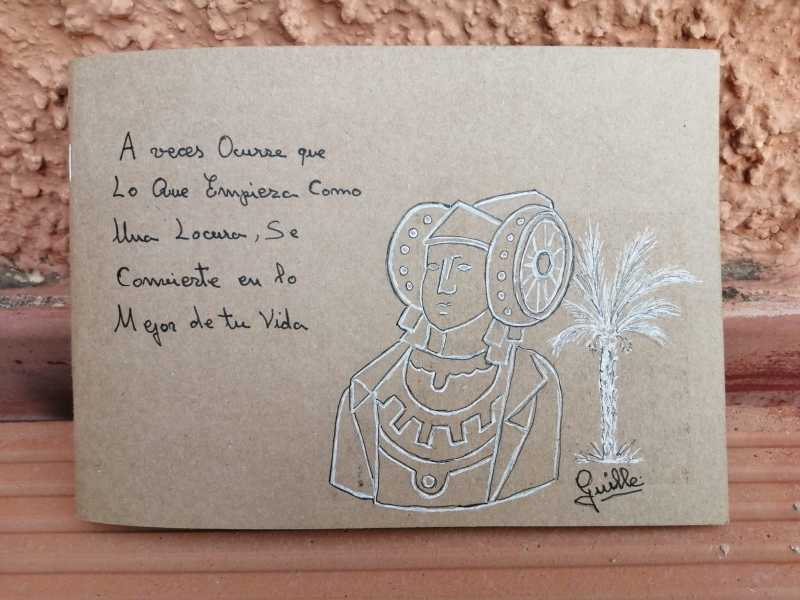 A veces Ocurre que
Lo Que Empieza Como
Una Locura, Se
Convierte en lo
Mejor de tu Vida
Guille